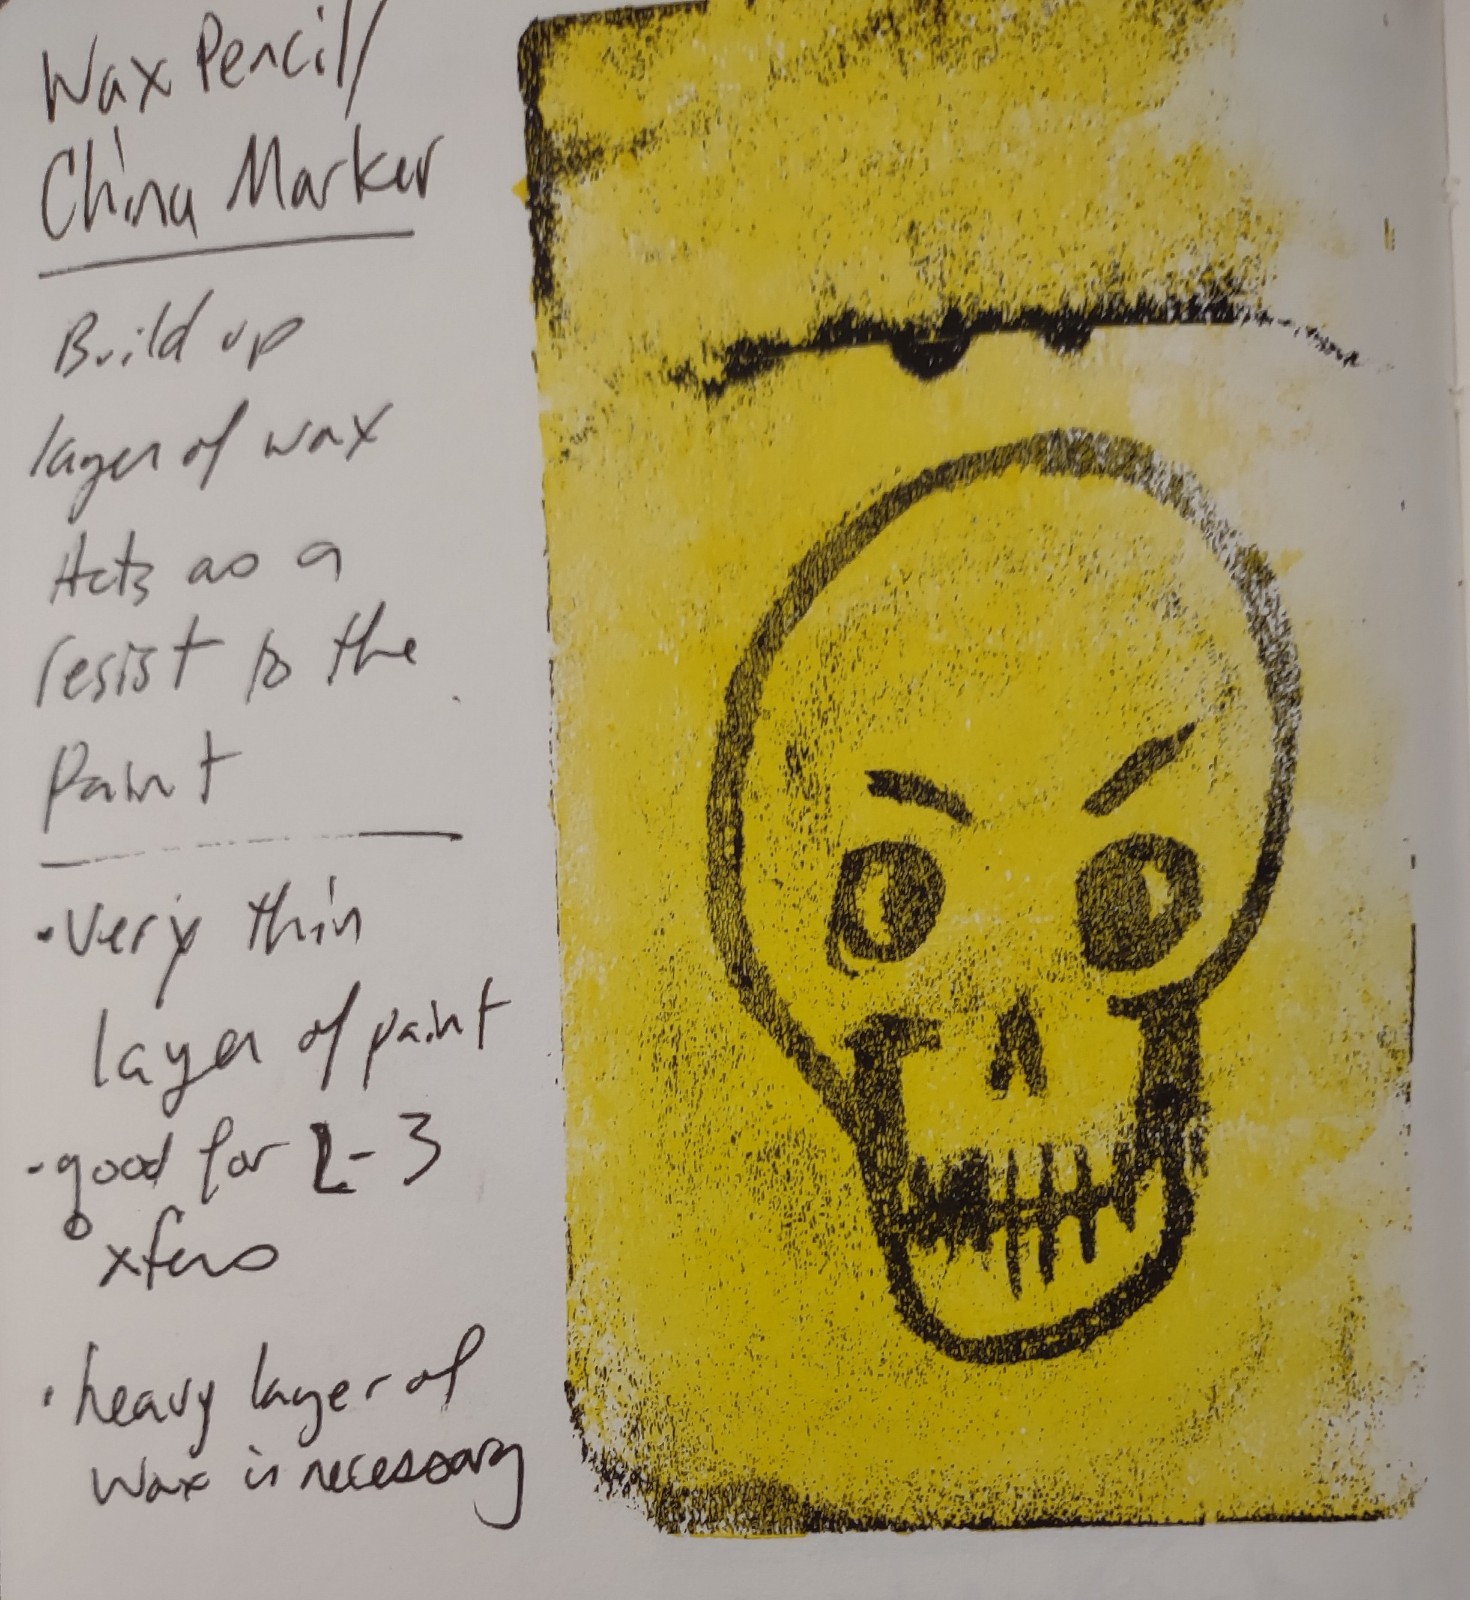 Wax Pencil/
China Marker
Build up
layer of wax
Acts as a
resist to the
Paint
• Very thin
layer of paint
- good for 2-3
xfers
• heavy layer of
Wax is necessary